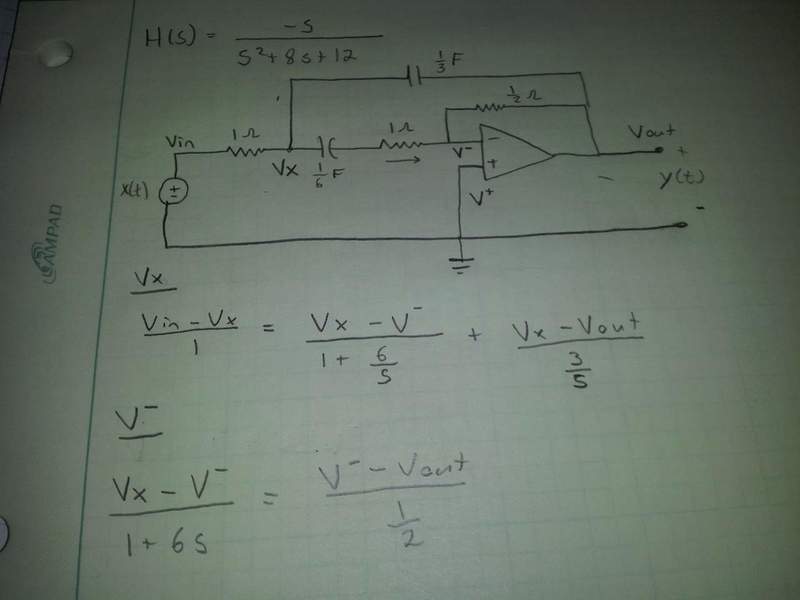 H(s) = -s / s² + 8s + 12
1/3 F
1/2 Ω
Vin 1Ω 1Ω Vout
Vx 1/6 F V⁻ - +
x(t) + - + V⁺ - y(t)
-
AMPAD
Vx
Vin - Vx / 1 = Vx - V⁻ / 1 + 6/s + Vx - Vout / 3/s
V⁻
Vx - V⁻ / 1 + 6s = V⁻ - Vout / 1/2